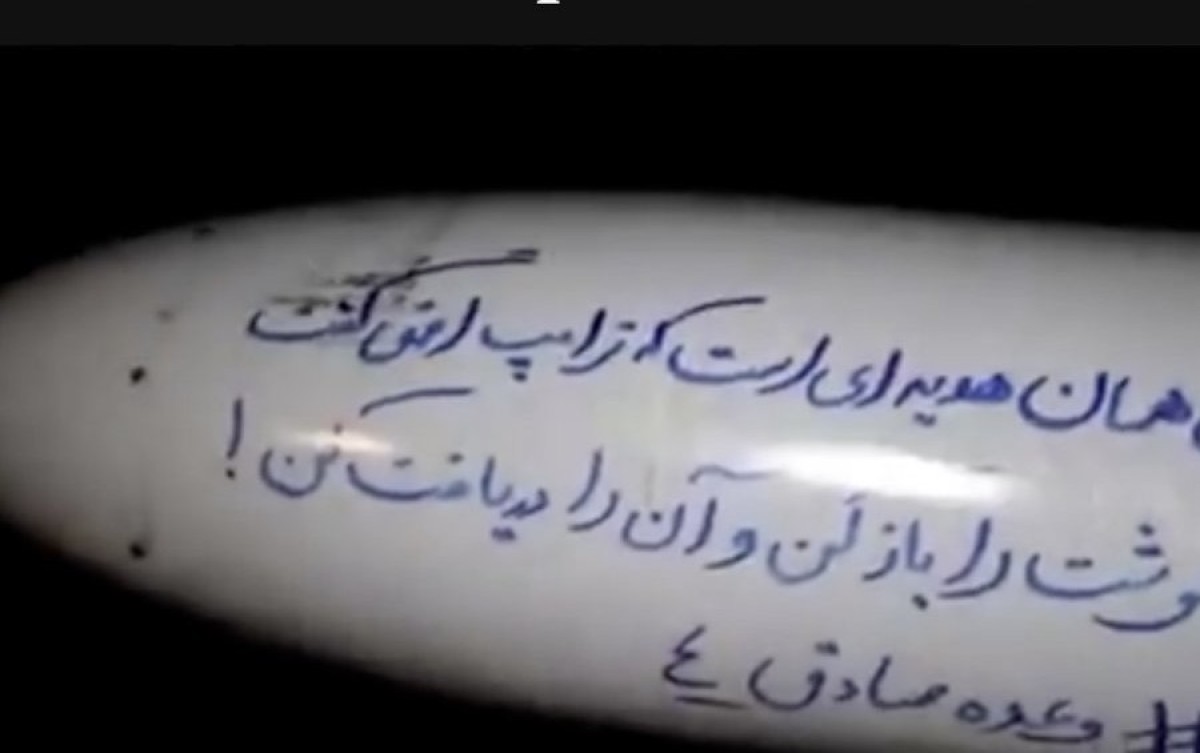 همان هدیه ای است که ترامپ احمق گفت
را باز کن و آن را دریافت کن!
# وعده صادق ٤